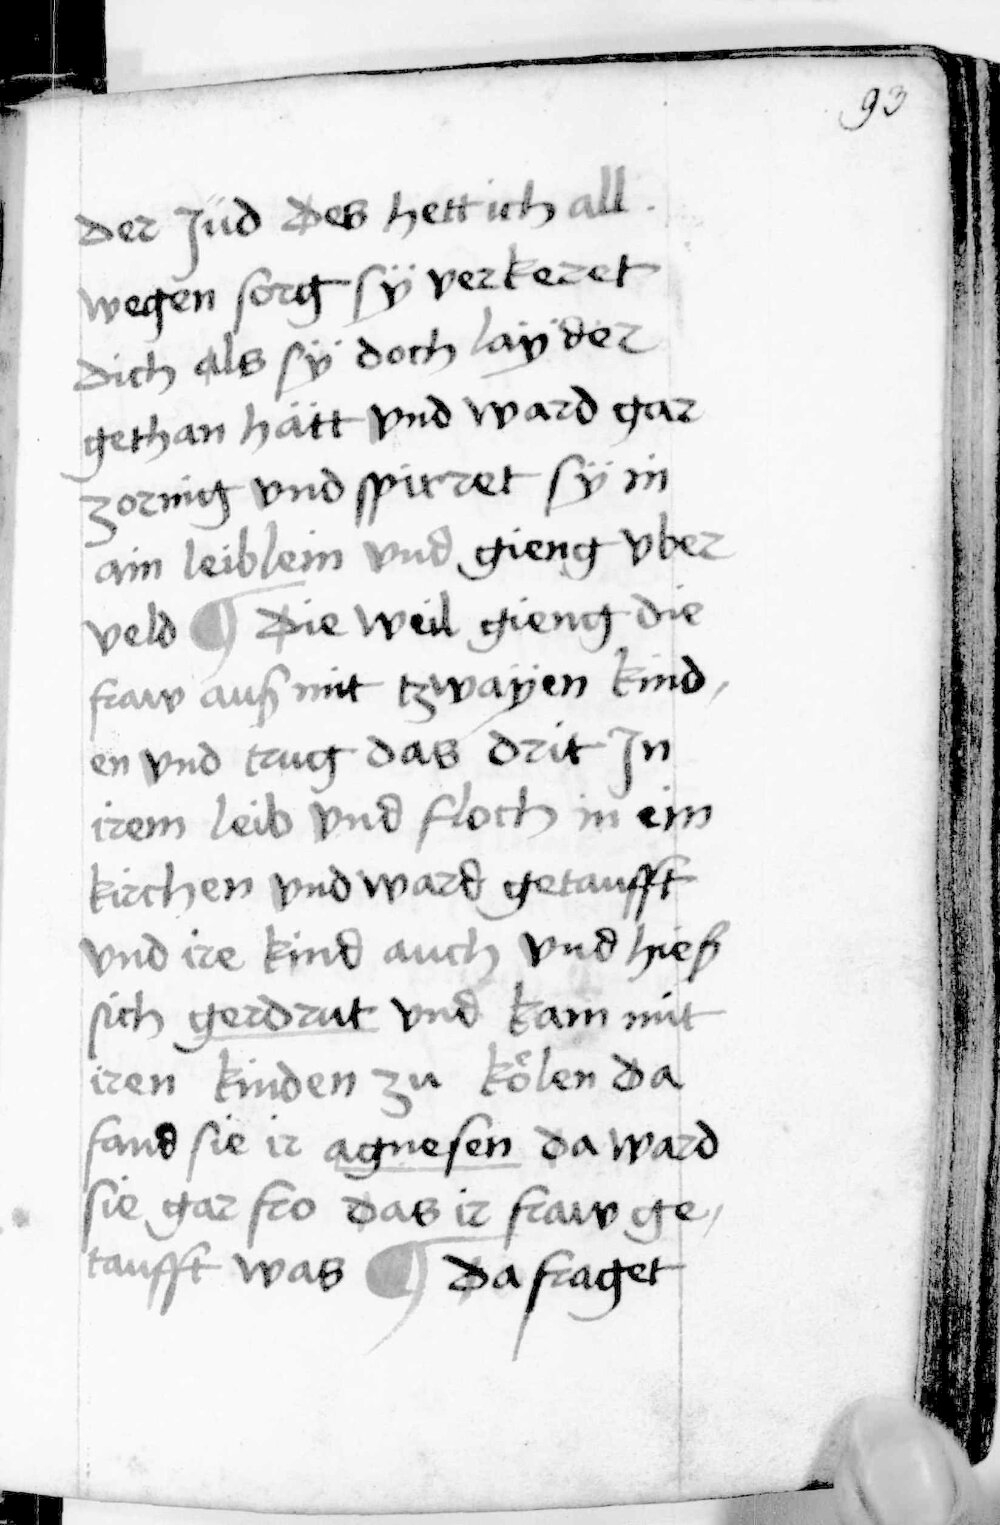 93
der Jüd des hett ich all
wegen sorg sÿ verkeret
dich als sÿ doch laÿder
gethan hätt vnd ward gar
zornig vnd spirret sÿ in
ain leiblein vnd gieng vber
veld ¶ Die weil gieng die
fraw auß mit tzwaÿen kind,
en vnd trug das drit Jn
irem leib vnd floch in ein
kirchen vnd ward getaufft
vnd ire kind auch vnd hieß
sich gerdrut vnd kam mit
iren kinden zu koͤlen da
fand sie ir agnesen da ward
sie gar fro das ir fraw ge,
taufft was ¶ Da fraget